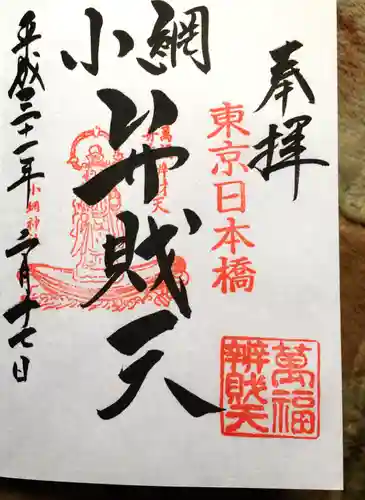 奉拝
東京日本橋
萬福
辨財天
小網
弁財天
小網神
平成二十一年二月十七日